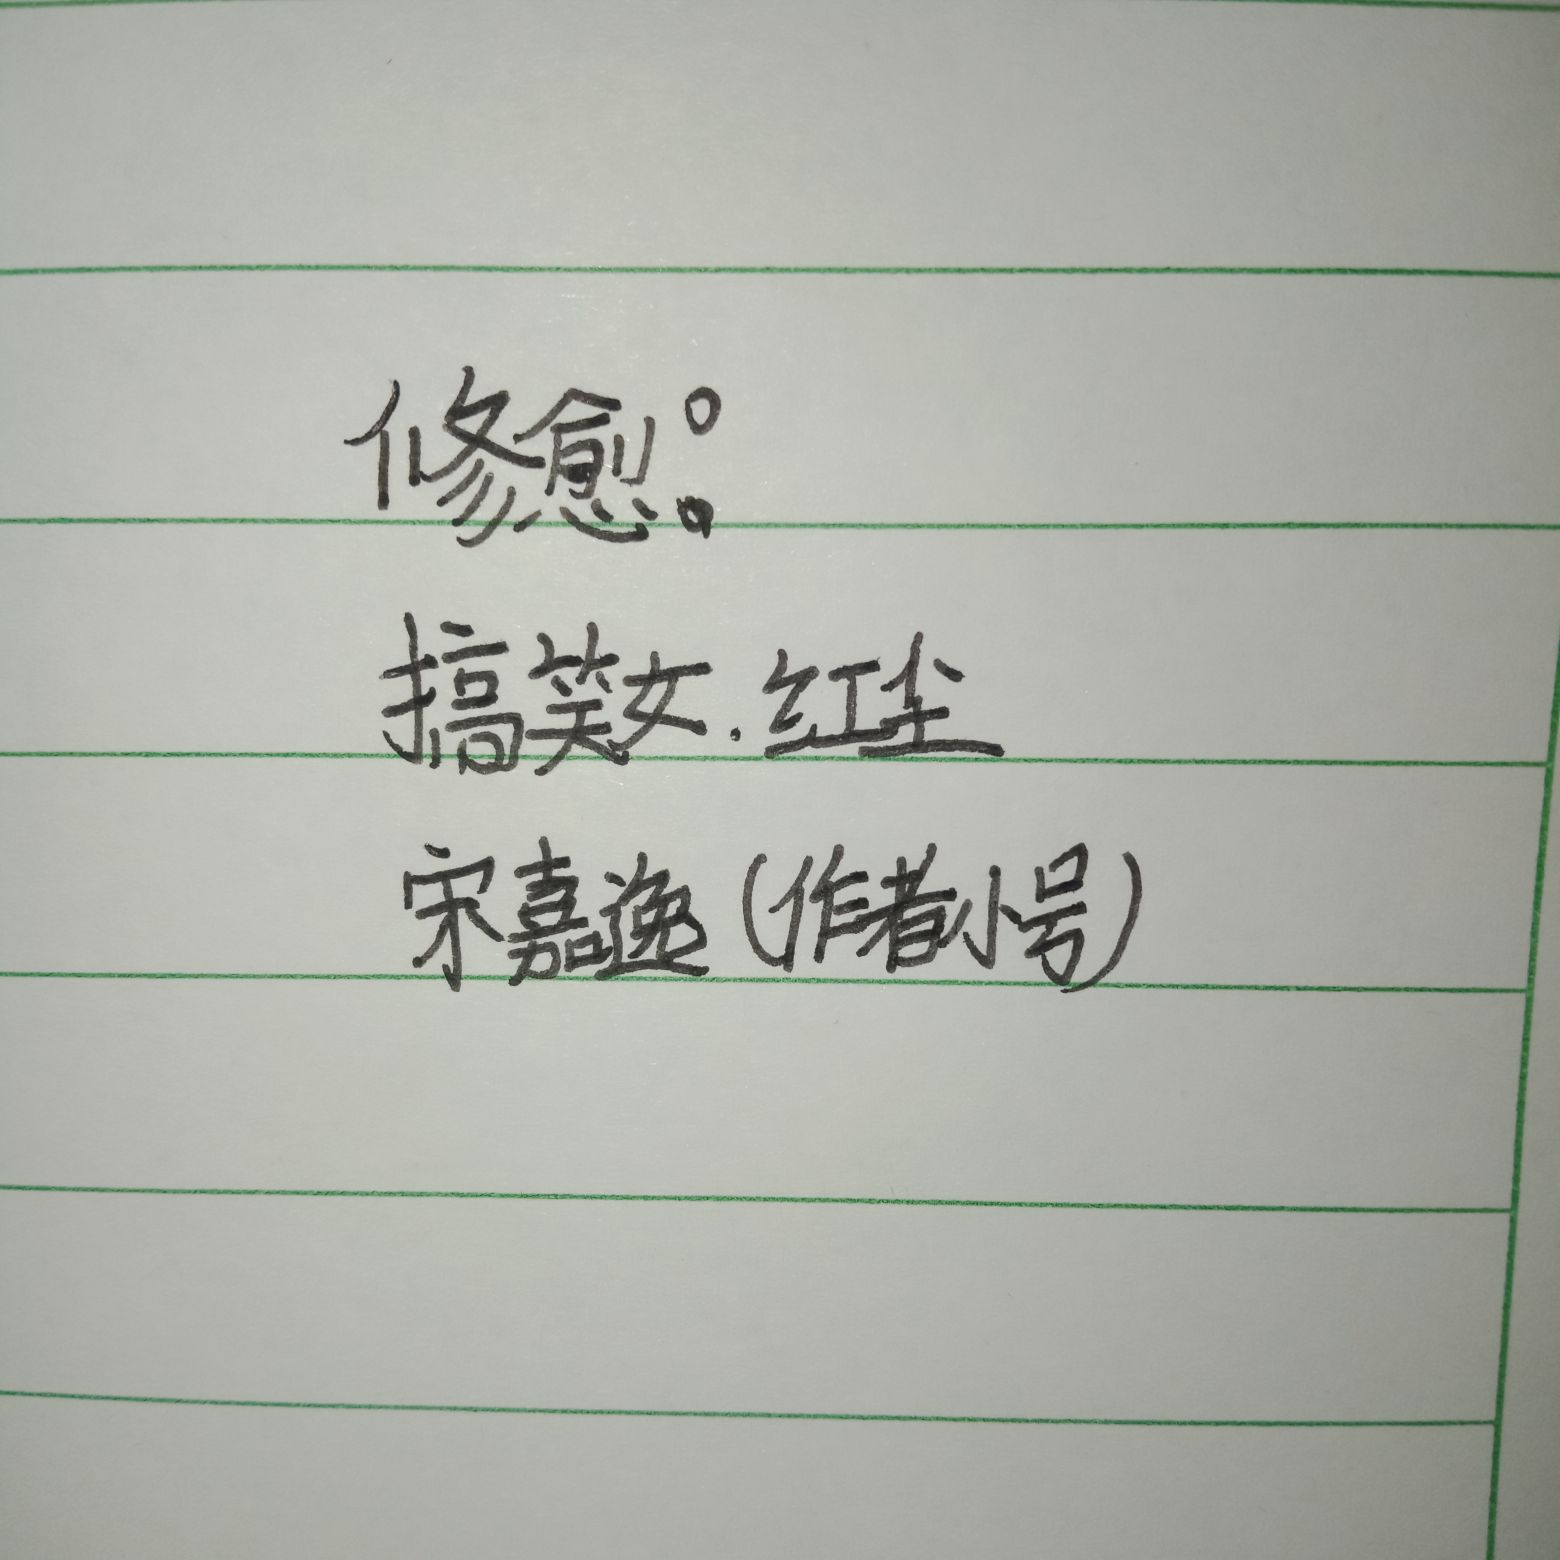 修愈：
搞笑女.红尘
宋嘉逸（作者小号）